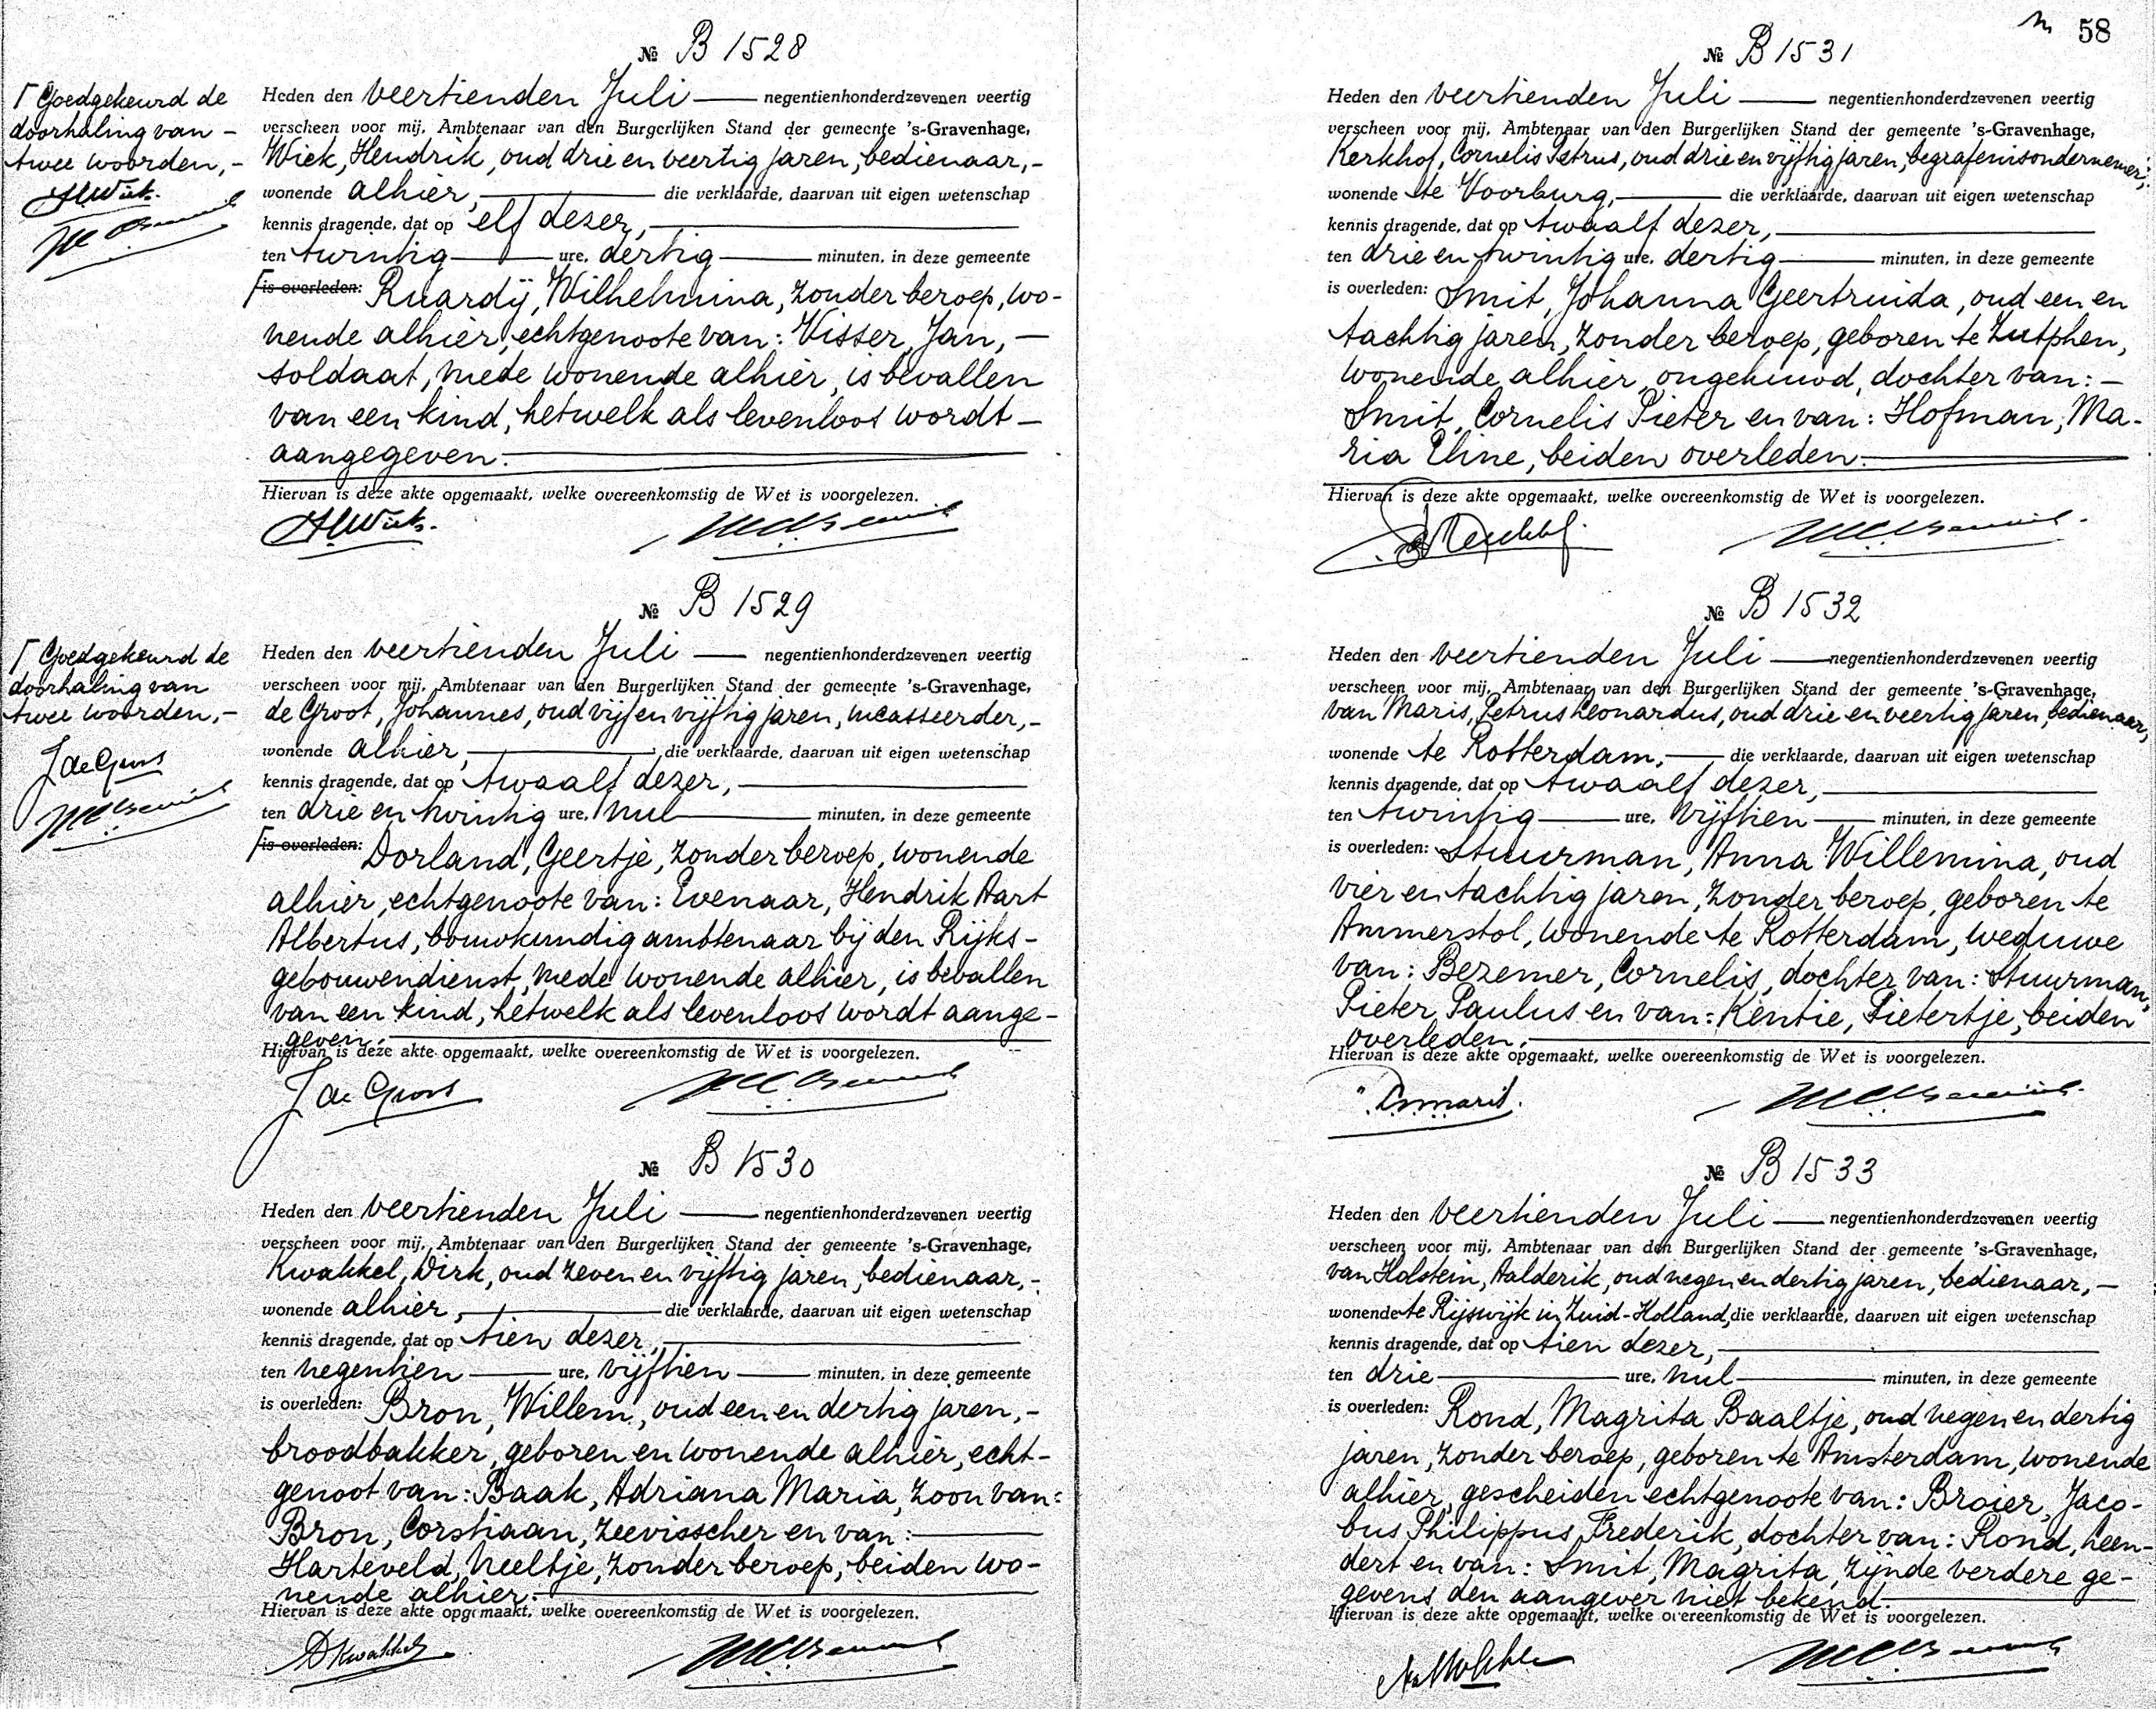 58
№ B 1528
Heden den veertienden Juli negentienhonderdzevenen veertig
verscheen voor mij, Ambtenaar van den Burgerlijken Stand der gemeente 's-Gravenhage,
Wiek, Hendrik, oud drie en veertig jaren, bedienaar,-
wonende alhier, die verklaarde, daarvan uit eigen wetenschap
kennis dragende, dat op elf dezer,
ten twintig ure, dertig minuten, in deze gemeente
is overleden: Ruardij, Wilhelmina, zonder beroep, wo-
nende alhier, echtgenoote van: Visser, Jan, -
soldaat, mede wonende alhier, is bevallen
van een kind, hetwelk als levenloos wordt -
aangegeven.
Hiervan is deze akte opgemaakt, welke overeenkomstig de Wet is voorgelezen.
Γ Goedgekeurd de
doorhaling van -
twee woorden, -
№ B 1529
Heden den veertienden Juli negentienhonderdzevenen veertig
verscheen voor mij, Ambtenaar van den Burgerlijken Stand der gemeente 's-Gravenhage,
de Groot, Johannes, oud vijf en vijftig jaren, incasseerder,-
wonende alhier, die verklaarde, daarvan uit eigen wetenschap
kennis dragende, dat op twaalf dezer,
ten drie en twintig ure, nul minuten, in deze gemeente
is overleden: Dorland, Geertje, zonder beroep, wonende
alhier, echtgenoote van: Evenaar, Hendrik Aart
Albertus, bouwkundig ambtenaar bij den Rijks-
gebouwendienst, mede wonende alhier, is bevallen
van een kind, hetwelk als levenloos wordt aange-
geven.
Hiervan is deze akte opgemaakt, welke overeenkomstig de Wet is voorgelezen.
J de Groot
Γ Goedgekeurd de
doorhaling van
twee woorden,-
J de Groot
№ B 1530
Heden den veertienden Juli negentienhonderdzevenen veertig
verscheen voor mij, Ambtenaar van den Burgerlijken Stand der gemeente 's-Gravenhage,
Kwakkel, Dirk, oud zeven en vijftig jaren, bedienaar,-
wonende alhier, die verklaarde, daarvan uit eigen wetenschap
kennis dragende, dat op tien dezer,
ten negentien ure, vijftien minuten, in deze gemeente
is overleden: Bron, Willem, oud een en dertig jaren,-
broodbakker, geboren en wonende alhier, echt-
genoot van: Baak, Adriana Maria, zoon van:
Bron, Corstiaan, zeevisscher en van:
Harteveld, Neeltje, zonder beroep, beiden wo-
nende alhier.
Hiervan is deze akte opgemaakt, welke overeenkomstig de Wet is voorgelezen.
D Kwakkel
№ B 1531
Heden den veertienden Juli negentienhonderdzevenen veertig
verscheen voor mij, Ambtenaar van den Burgerlijken Stand der gemeente 's-Gravenhage,
Kerkhof, Cornelis Petrus, oud drie en vijftig jaren, begrafenisondernemer,
wonende te Voorburg, die verklaarde, daarvan uit eigen wetenschap
kennis dragende, dat op twaalf dezer,
ten drie en twintig ure, dertig minuten, in deze gemeente
is overleden: Smit, Johanna Geertruida, oud een en
tachtig jaren, zonder beroep, geboren te Zutphen,
wonende alhier, ongehuwd, dochter van: -
Smit, Cornelis Pieter en van: Hofman, Ma-
ria Eline, beiden overleden.
Hiervan is deze akte opgemaakt, welke overeenkomstig de Wet is voorgelezen.
№ B 1532
Heden den veertienden Juli negentienhonderdzevenen veertig
verscheen voor mij, Ambtenaar van den Burgerlijken Stand der gemeente 's-Gravenhage,
van Maris, Petrus Leonardus, oud drie en veertig jaren, bedienaar,
wonende te Rotterdam, die verklaarde, daarvan uit eigen wetenschap
kennis dragende, dat op twaalf dezer,
ten twintig ure, vijftien minuten, in deze gemeente
is overleden: Stuurman, Anna Willemina, oud
vier en tachtig jaren, zonder beroep, geboren te
Ammerstol, wonende te Rotterdam, weduwe
van: Bezemer, Cornelis, dochter van: Stuurman,
Pieter Paulus en van: Kentie, Pietertje, beiden
overleden.
Hiervan is deze akte opgemaakt, welke overeenkomstig de Wet is voorgelezen.
№ B 1533
Heden den veertienden Juli negentienhonderdzevenen veertig
verscheen voor mij, Ambtenaar van den Burgerlijken Stand der gemeente 's-Gravenhage,
van Holstein, Aalderik, oud negen en dertig jaren, bedienaar,-
wonende te Rijswijk in Zuid-Holland, die verklaarde, daarvan uit eigen wetenschap
kennis dragende, dat op tien dezer,
ten drie ure, nul minuten, in deze gemeente
is overleden: Rond, Magrita Baaltje, oud negen en dertig
jaren, zonder beroep, geboren te Amsterdam, wonende
alhier, gescheiden echtgenoote van: Broier, Jaco-
bus Philippus Frederik, dochter van: Rond, Leen-
dert en van: Smit, Magrita, zijnde verdere ge-
gevens den aangever niet bekend.
Hiervan is deze akte opgemaakt, welke overeenkomstig de Wet is voorgelezen.